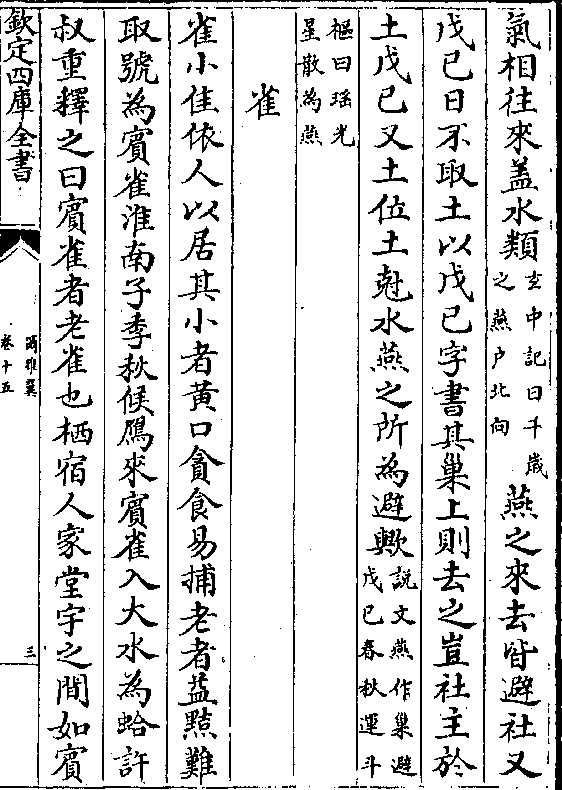 氣相往來盖水類玄中記曰千歲之燕户北向燕之來去皆避社又
戊己日不取土以戊己字書其巢上則去之豈社主於
土戊己又土位土尅水燕之所為避歟説文燕作巢避戊己春秋運斗
樞曰瑶光星散為燕
雀
雀小隹依人以居其小者黄口貪食易捕老者益黠難
取號為賓雀淮南子季秋候鴈來賓雀入大水為蛤許
叔重釋之曰賓雀者老雀也栖宿人家堂宇之間如賓
欽定四庫全書
爾雅翼
卷十五
三